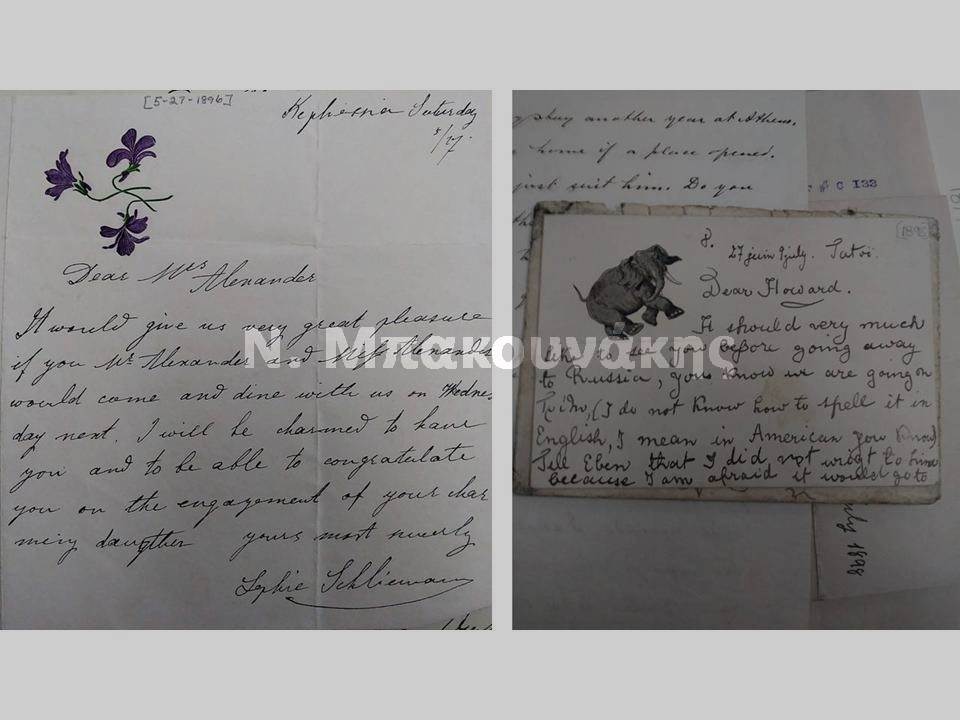 [5-27-1896]
Kephissia Saturday
5/27.
Dear Mrs Alexander
It would give us very great pleasure
if you Mr Alexander and Miss Alexander
would come and dine with us on Wednes
day next. I will be charmed to have
you and to be able to congratulate
you on the engagement of your char
ming daughter yours most sincerely
Sophie Schliemann
stay another year at Athens.
home if a place opened.
just suit him. Do you
& C 133
8.
27 juin 9 july. Tatoi.
Dear Howard.
It should very much
like to see you before going away
to Russia, you know we are going on
(I do not know how to spell it in
English, I mean in American you know)
Tell Eben that I did not wright to him
because I am afraid it would go to
July 1898
Ν. Μπακουνάκης